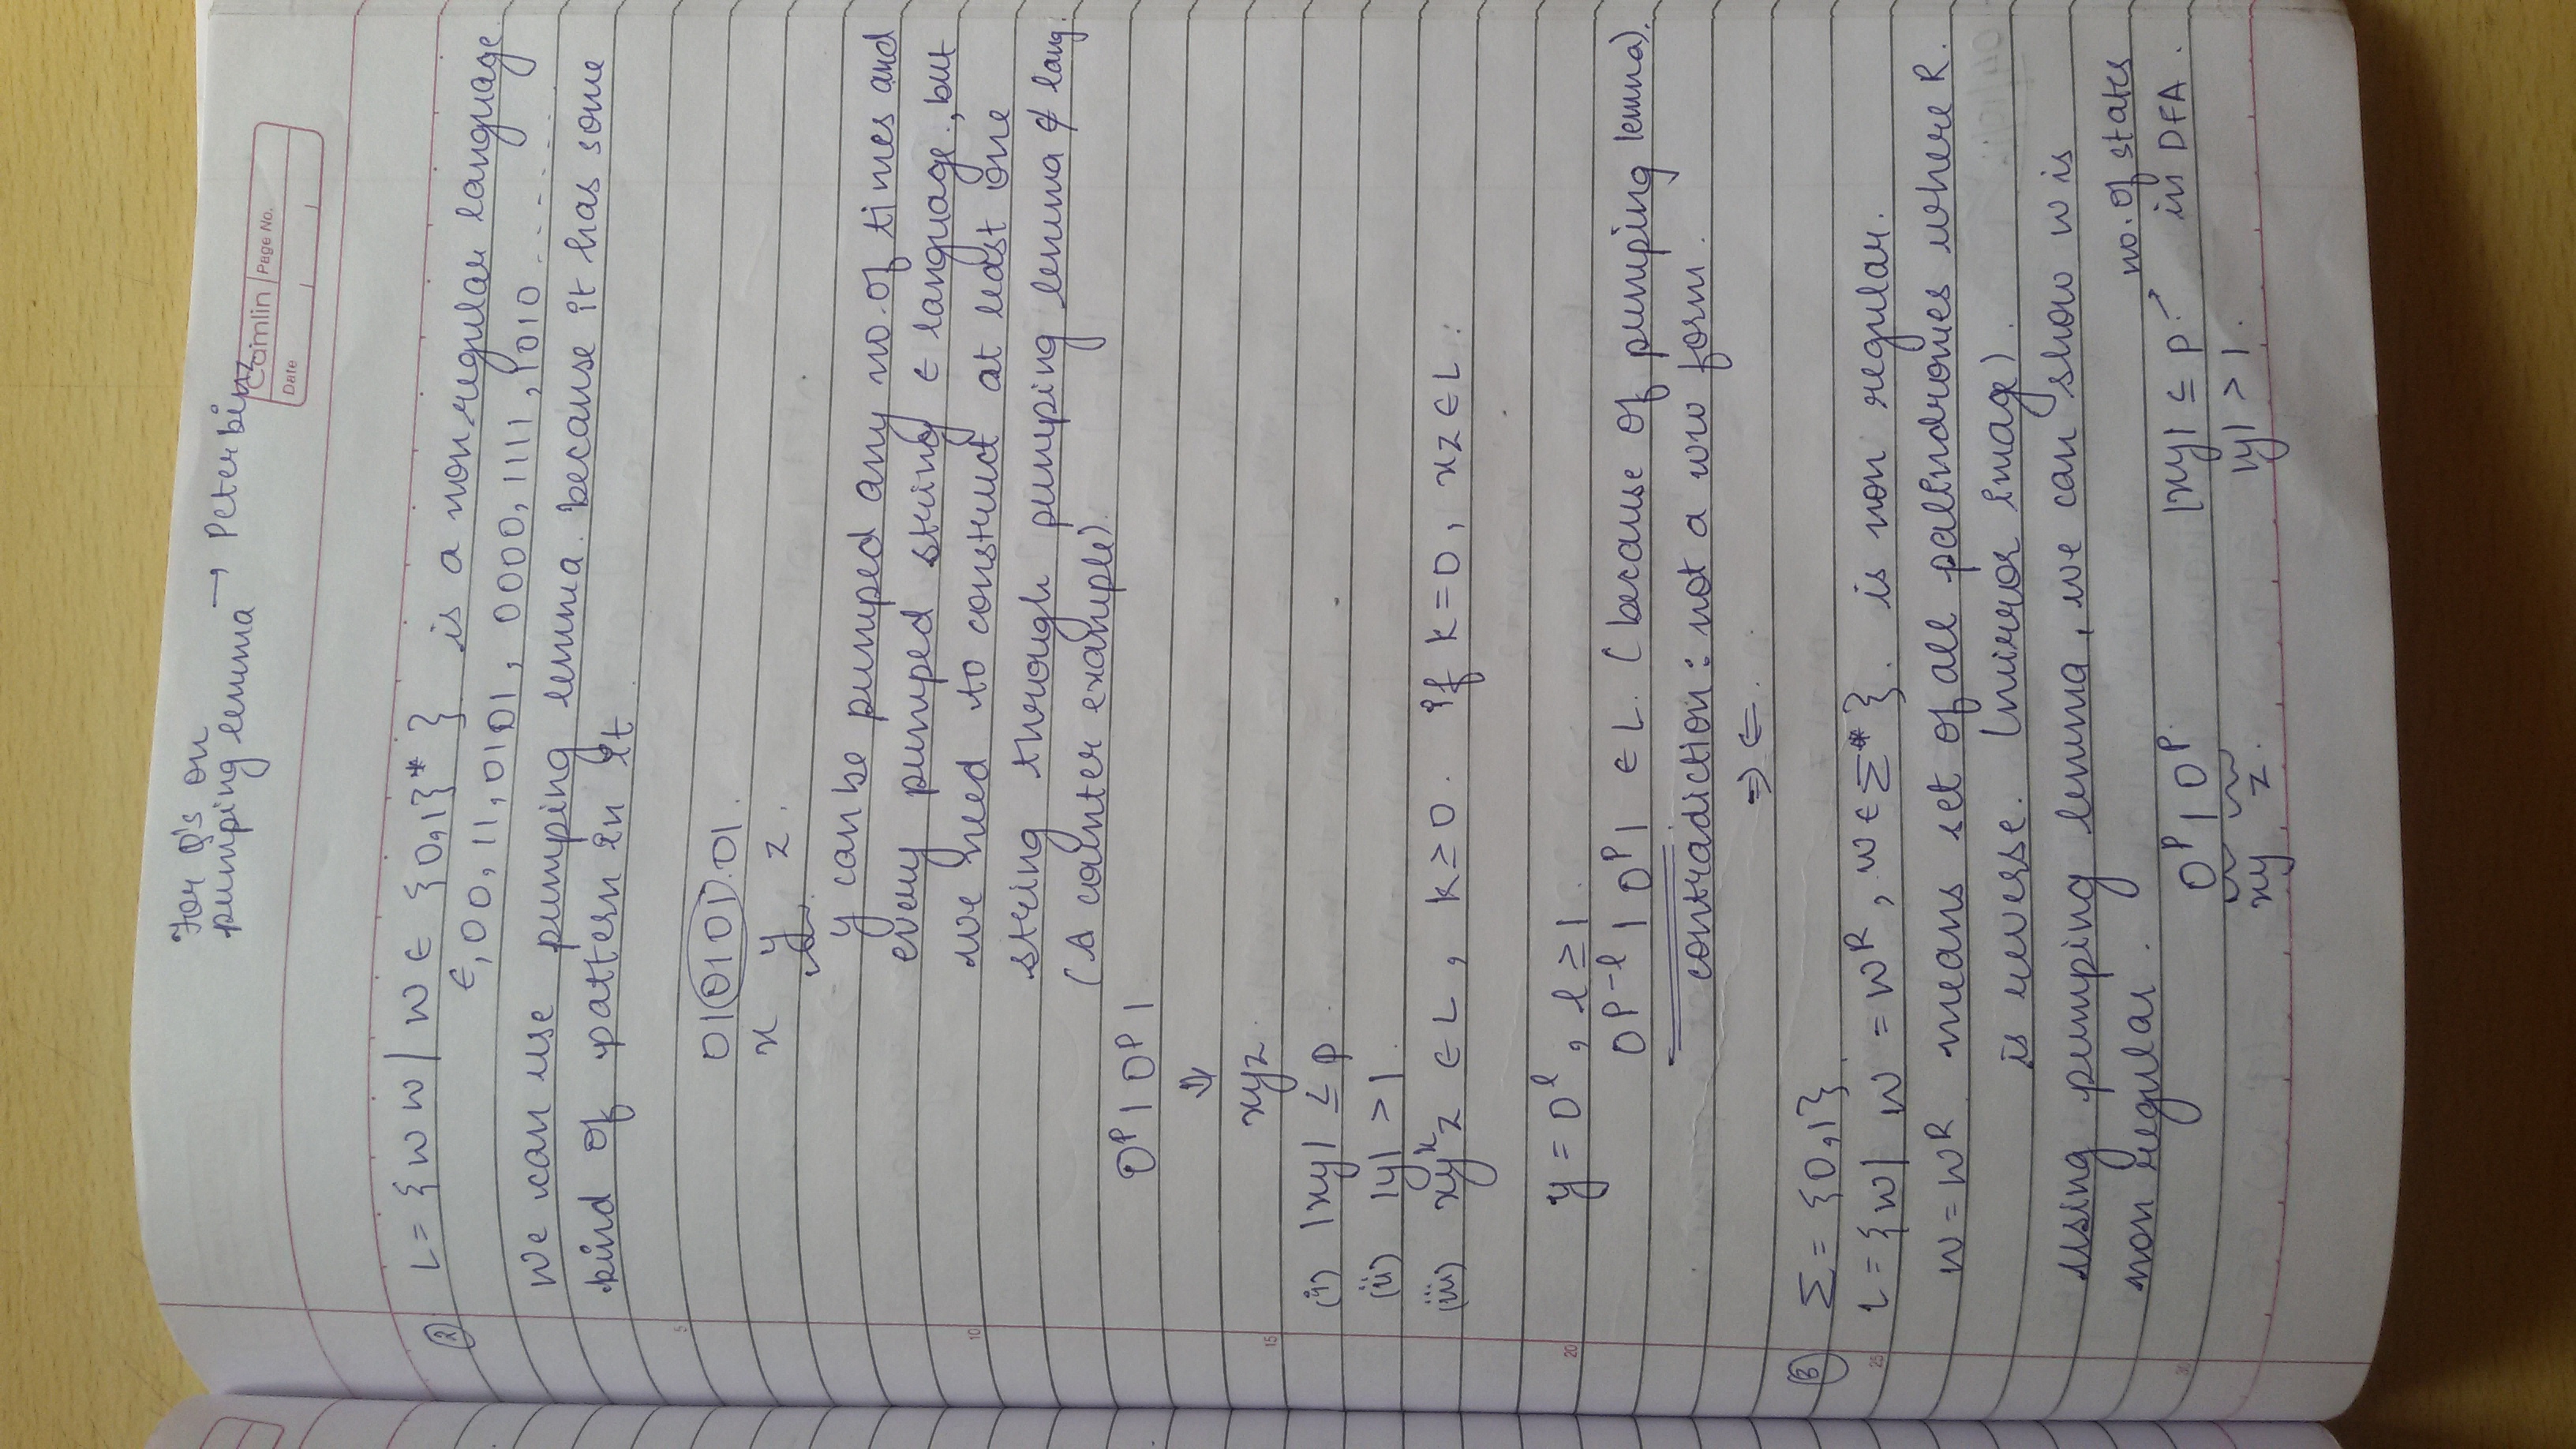 For Q's on
pumping lemma → Peter binz.
Camlin Page No.
Date
② L = {ww | w ∈ {0,1}* } is a non regular language.
ϵ, 00, 11, 0101, 0000, 1111, 1010 .......
We can use pumping lemma. because it has some
kind of pattern in it.
5
01 0101 01.
x y z.
y can be pumped any no. of times and
every pumped string ∈ language., but
10
we need to construct at least one
string through pumping lemma ∉ lang.
(A counter example).
0ᵖ 1 0ᵖ 1
⇓
xyz.
15
(i) |xy| ≤ p.
(ii) |y| > 1.
(iii) xyᵏz ∈ L, k ≥ 0. if k = 0, xz ∈ L.
20
y = 0ˡ, l ≥ 1.
0ᵖ⁻ˡ 1 0ᵖ 1 ∈ L. (because of pumping lemma).
contradiction: not a ww form.
⇒ ⇐.
③ Σ = {0,1}.
25
L = {w | w = wᴿ, w ∈ Σ* }. is non regular.
w = wᴿ means set of all palindromes where R.
is reverse. (mirror image).
Using pumping lemma, we can show w is
non regular.
30
0ᵖ 1 0ᵖ. |xy| ≤ p. → no. of states
in DFA.
xy z. |y| > 1.